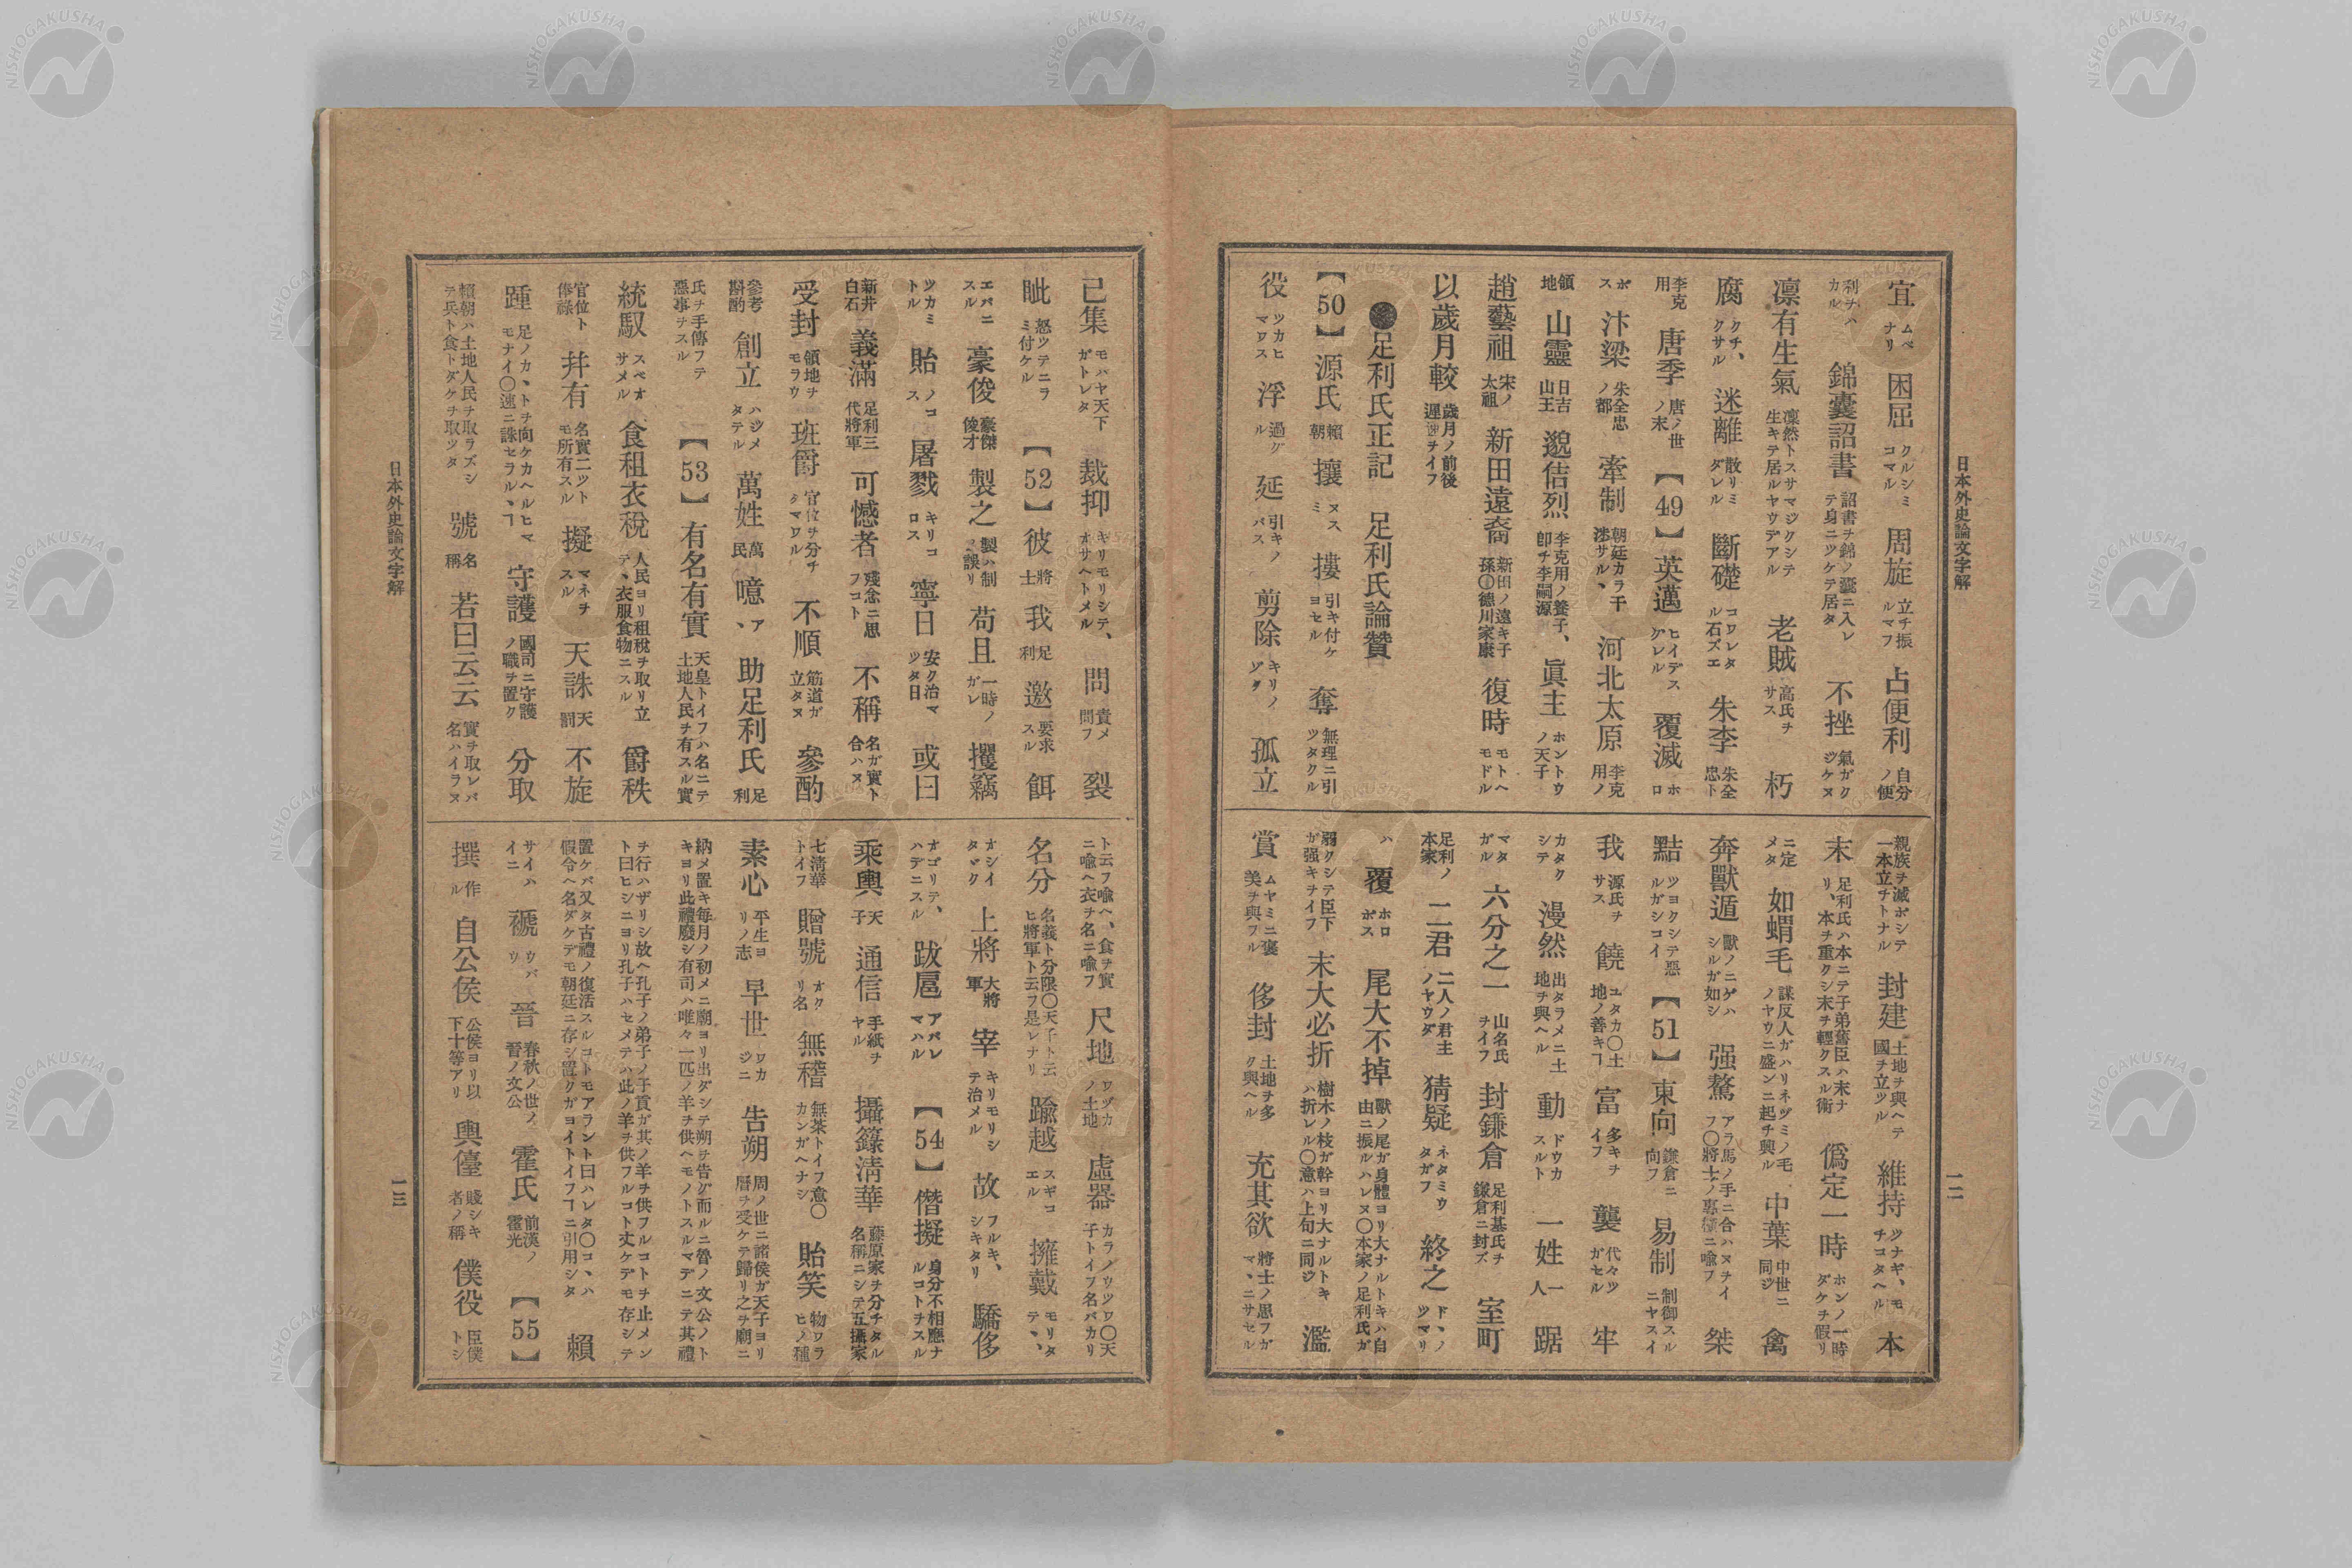 日本外史論文字解
一二
宜 ムベナリ 困屈 クルシミコマル 周旋 立チ振ルマフ 占便利 自分ノ便
利ヲハカル 錦囊詔書 詔書ヲ錦ノ囊ニ入レテ身ニツケテ居タ 不挫 氣ガクジケヌ
凛有生氣 凛然トスサマジクシテ生キテ居ルヤウデアル 老賊 高氏ヲサス 朽
腐 クチ、クサル 迷離 散リミダレル 斷礎 コワレタル石ズエ 朱李 朱全忠ト
李克用 唐季 唐ノ世ノ末 【49】 英邁 ヒイデスグレル 覆滅 ホロ
ボス 汴梁 朱全忠ノ都 牽制 朝廷カラ干渉サル、 河北太原 李克用ノ
領地 山靈 日吉山王 邈佶烈 李克用ノ養子、卽チ李嗣源 眞主 ホントウノ天子
趙藝祖 宋ノ太祖 新田遠裔 新田ノ遠キ子孫〇德川家康 復時 モトヘモドル
以歲月較 歲月ノ前後遲速ヲイフ
●足利氏正記 足利氏論贊
【50】 源氏 賴朝 攘 ヌスミ 摟 引キ付ケヨセル 奪 無理ニ引ツタクル
役 ツカヒマワス 浮 過グル 延 引キノバス 剪除 キリノゾク 孤立
親族ヲ滅ボシテ一本立チトナル 封建 土地ヲ與ヘテ國ヲ立ツル 維持 ツナギ、モチコタヘル 本
末 足利氏ハ本ニテ子弟舊臣ハ末ナリ、本ヲ重クシ末ヲ輕クスル術 僞定一時 ホンノ一時ダケヲ假リ
ニ定メタ 如蝟毛 謀反人ガハリネヅミノ毛ノヤウニ盛ンニ起チ興ル 中葉 中世ニ同ジ 禽
奔獸遁 獸ノニゲハシルガ如シ 强驁 アラ馬ノ手ニ合ハヌヲイフ〇將士ノ專橫ニ喩フ 桀
黠 ツヨクシテ惡ルガシコイ 【51】 東向 鎌倉ニ向フ 易制 制御スルニヤスイ
我 源氏ヲサス 饒 ユタカ〇土地ノ善キヿ 富 多キヲイフ 襲 代々ツガセル 牢
カタクシテ 漫然 出タラメニ土地ヲ與ヘル 動 ドウカスルト 一姓 一人 踞
マタガル 六分之一 山名氏ヲイフ 封鎌倉 足利基氏ヲ鎌倉ニ封ズ 室町
足利ノ本家 二君 二人ノ君主ノヤウダ 猜疑 ネタミウタガフ 終之 ドヽノツマリ
ハ 覆 ホロボス 尾大不掉 獸ノ尾ガ身體ヨリ大ナルトキハ自由ニ振ルハレヌ〇本家ノ足利氏ガ
弱クシテ臣下ガ强キヲイフ 末大必折 樹木ノ枝ガ幹ヨリ大ナルトキハ折レル〇意ハ上句ニ同ジ 濫
賞 ムヤミニ褒美ヲ與フル 侈封 土地ヲ多ク與ヘル 充其欲 將士ノ思フガマヽニサセル
已集 モハヤ天下ガトレタ 裁抑 キリモリシテ、オサヘトメル 問 責メ問フ 裂
眦 怒ツテニラミ付ケル 【52】 彼 將士 我 足利 邀 要求スル 餌
エバニスル 豪俊 豪傑俊才 製之 製ハ制ノ誤リ 苟且 一時ノガレ 攫竊
ツカミトル 貽 ノコス 屠戮 キリコロス 寧日 安ク治マツタ日 或曰
新井白石 義滿 足利三代將軍 可憾者 殘念ニ思フコト 不稱 名ガ實ト合ハヌ
受封 領地ヲモラウ 班爵 官位ヲ分チマワル 不順 筋道ガ立タヌ 參酌
參考斟酌 創立 ハジメタテル 萬姓 萬民 噫 、ア 助足利氏 足利
氏ヲ手傳フテ惡事ヲスル 【53】 有名有實 天皇トイフハ名ニテ土地人民ヲ有スル實
統馭 スベオサメル 食租衣稅 人民ヨリ租稅ヲ取リ立テ、衣服食物ニスル 爵秩
官位ト俸祿 幷有 名實二ツトモ所有スル 擬 マネヲスル 天誅 天罰 不旋
踵 足ノカヽトヲ向ケカヘルヒマモナイ〇速ニ誅セラルヽヿ 守護 國司ニ守護ノ職ヲ置ク 分取
賴朝ハ土地人民ヲ取ラズシテ兵ト食トダケヲ取ツタ 號 名稱 若曰云云 實ヲ取レバ名ハイラヌ
ト云フ喩ヘ、食ヲ實ニ喩ヘ衣ヲ名ニ喩フ 尺地 ワヅカノ土地 虛器 カラノウツワ〇天子トイフ名バカリ
名分 名義ト分限〇天子ト云ヒ將軍ト云フ是レナリ 踰越 スギコエル 擁戴 モリタテヽ、
オシイタヾク 上將 大將軍 宰 キリモリシテ治メル 故 フルキ、シキタリ 驕侈
オゴリテ、ハデニスル 跋扈 アバレマハル 【54】 僭擬 身分不相應ナルコトヲスル
乘輿 天子 通信 手紙ヲヤル 攝籙淸華 藤原家ヲ分チタル名稱ニシテ五攝家
七淸華トイフ 贈號 オクリ名 無稽 無茶トイフ意〇カンガヘナシ 貽笑 物ワラヒノ種
素心 平生ヨリノ志 早世 ワカジニ 告朔 周ノ世ニ諸侯ガ天子ヨリ曆ヲ受ケテ歸リ之ヲ廟ニ
納メ置キ每月ノ初メニ廟ヨリ出ダシテ朔ヲ告グ而ルニ魯ノ文公ノトキヨリ此禮廢シ有司ハ唯々一匹ノ羊ヲ供ヘモノトスルマデニテ其禮
ヲ行ハザリシ故ヘ孔子ノ弟子ノ子貢ガ其ノ羊ヲ供フルコトヲ止メント曰ヒシニヨリ孔子ハセメテハ此ノ羊ヲ供フルコト丈ケデモ存シテ
置ケバ又タ古禮ノ復活スルコトモアラント曰ハレタ〇コヽハ假令ヘ名ダケデモ朝廷ニ存シ置クガヨイトイフヿニ引用シタ 賴
サイハイニ 褫 ウバウ 晉 春秋ノ世ノ、晉ノ文公 霍氏 前漢ノ霍光 【55】
撰 作ル 自公侯 公侯ヨリ以下十等アリ 輿儓 賤シキ者ノ稱 僕役 臣僕トシ
日本外史論文字解
一三